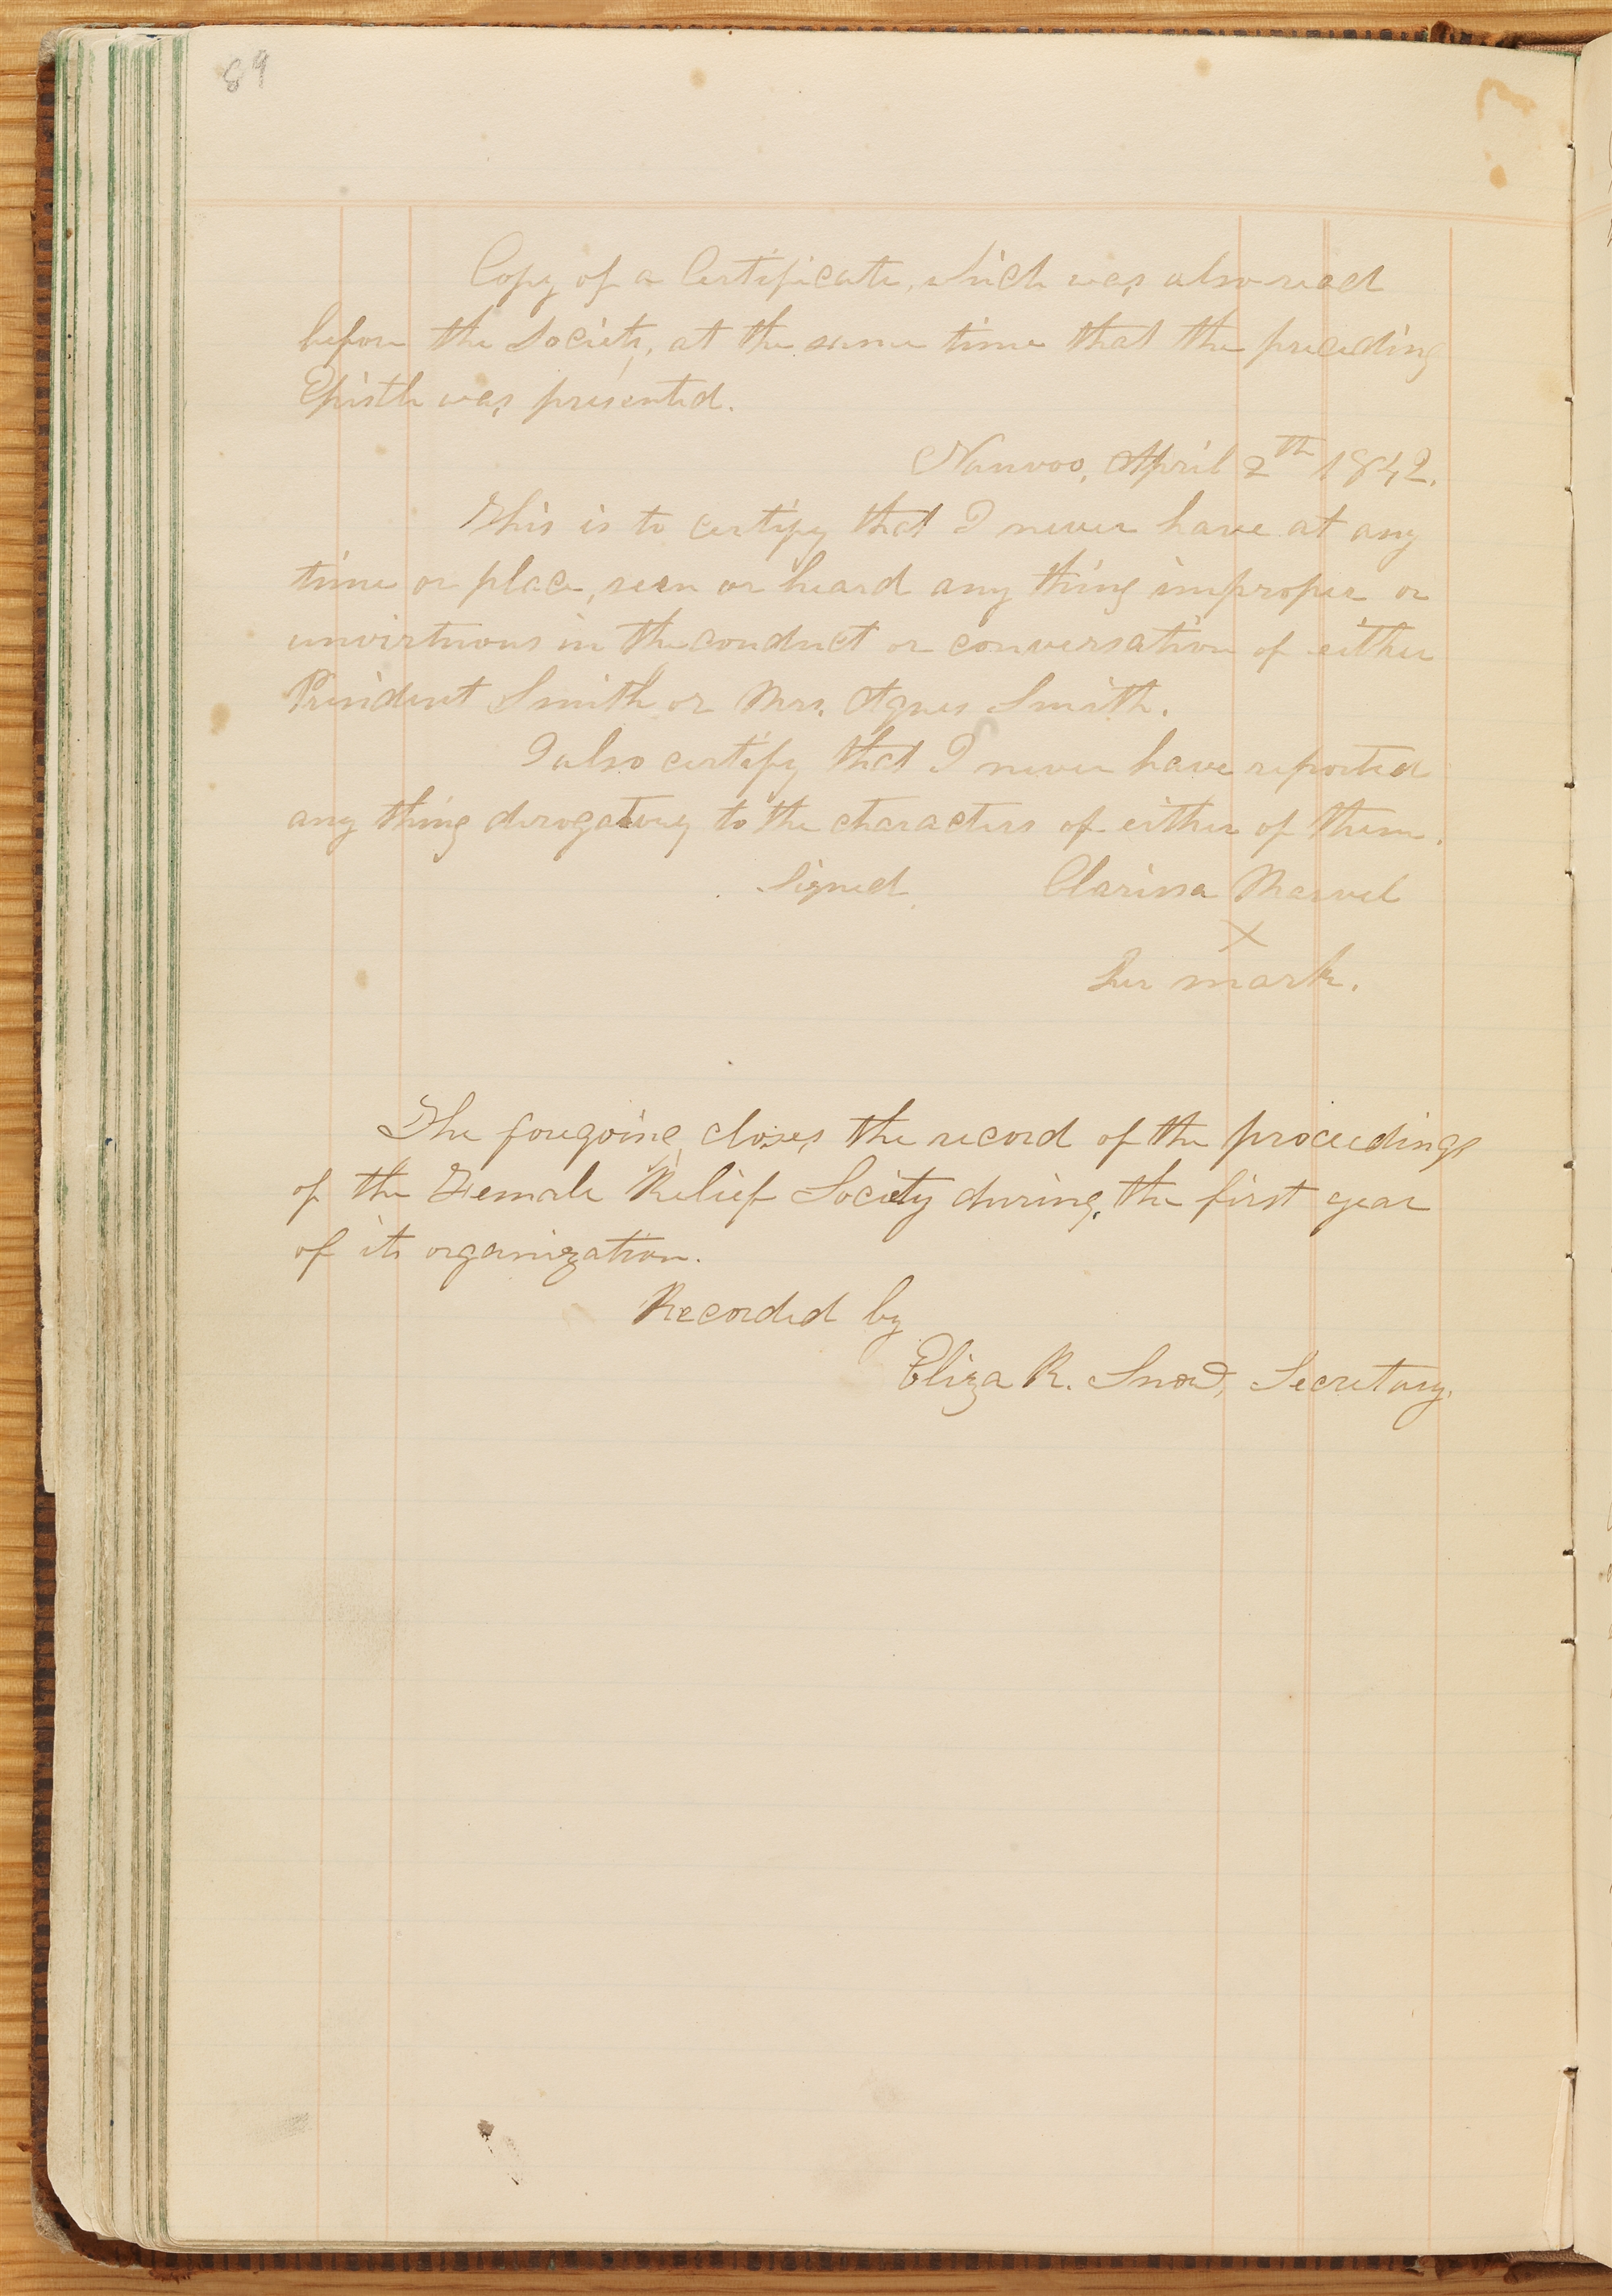 89
Copy of a Certificate, which was also read
before the Society, at the same time that the preceding
Epistle was presented.
Nauvoo, April 2th 1842.
This is to certify that I never have at any
time or place, seen or heard any thing improper or
unvirtuous in the conduct or conversation of either
President Smith or Mrs. Agnes Smith.
I also certify that I never have reported
any thing derogatory to the characters of either of them.
Signed Clarissa Marvel
X
her mark.
The foregoing closes the record of the proceedings
of the Female Relief Society during the first year
of its organization.
Recorded by
Eliza R. Snow, Secretary.